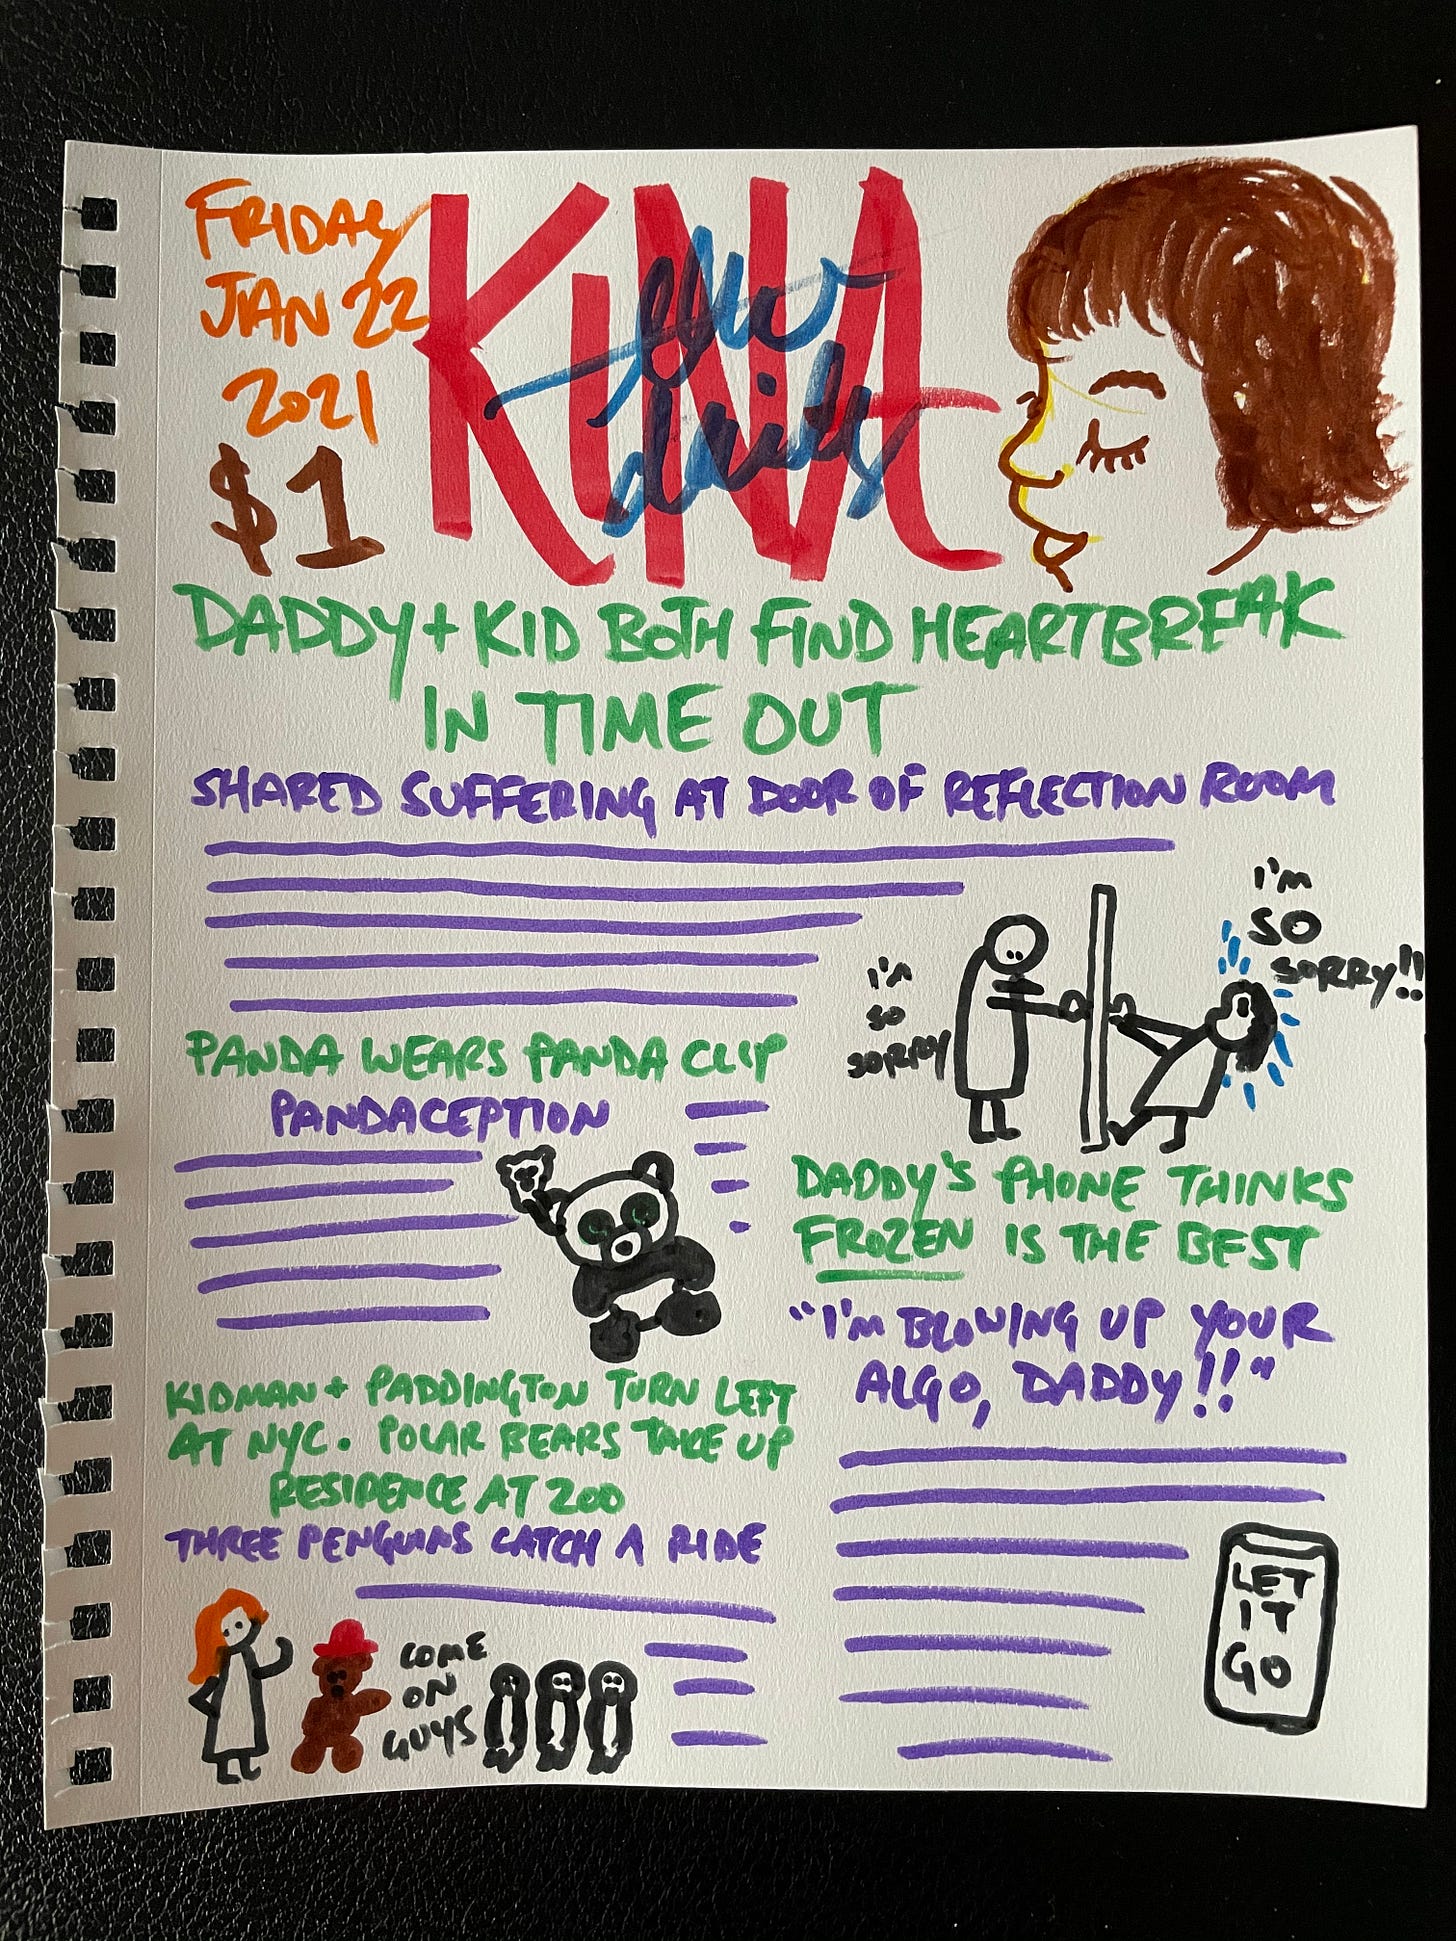 FRIDAY
JAN 22
2021
$1
KINA
the
daily
DADDY + KID BOTH FIND HEARTBREAK
IN TIME OUT
SHARED SUFFERING AT DOOR OF REFLECTION ROOM
I'M
SO
SORRY
I'M
SO
SORRY!!
PANDA WEARS PANDA CLIP
PANDACEPTION
DADDY'S PHONE THINKS
FROZEN IS THE BEST
"I'M BLOWING UP YOUR
ALGO, DADDY!!"
LET
IT
GO
KIDMAN + PADDINGTON TURN LEFT
AT NYC. POLAR BEARS TAKE UP
RESIDENCE AT ZOO
THREE PENGUINS CATCH A RIDE
COME
ON
GUYS